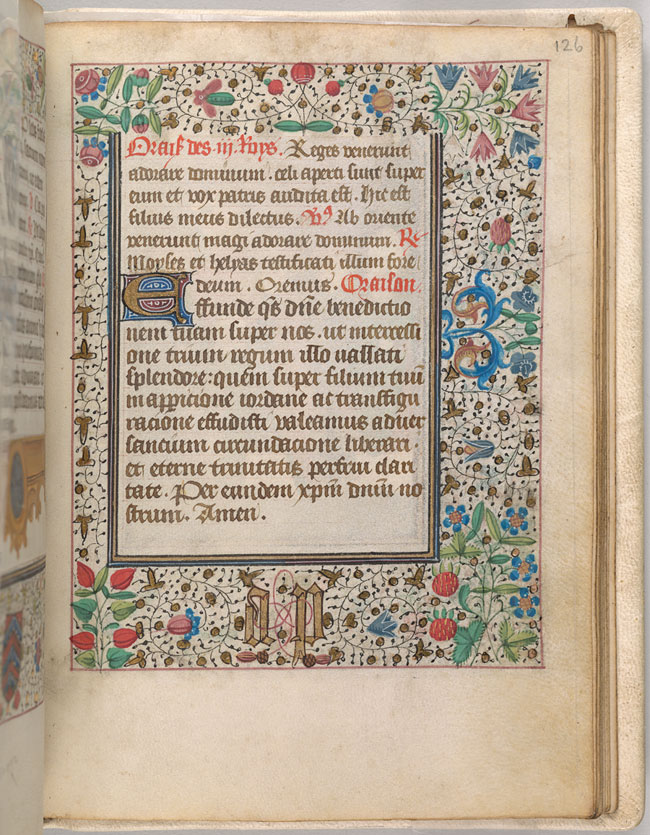 126
Orais des iij Roys. Reges venerunt
adorare dominum. celi aperti sunt super
eum et vox patris audita est. hic est
filius meus dilectus. Ab oriente
venerunt magi adorare dominum.
Moyses et helyas testificati illum fore
deum. Oremus. Oraison.
Effunde qs dne benedictio
nem tuam super nos. ut intercessi
one trium regum illo uallati
splendore: quem super filium tuu
in appicione iordane ac transfigu
racione effudisti valeamus aduer
santium circundacione liberari.
et eterne trinitatis perfrui clari
tate. Per eundem xpm dnm no
strum. Amen.
a p